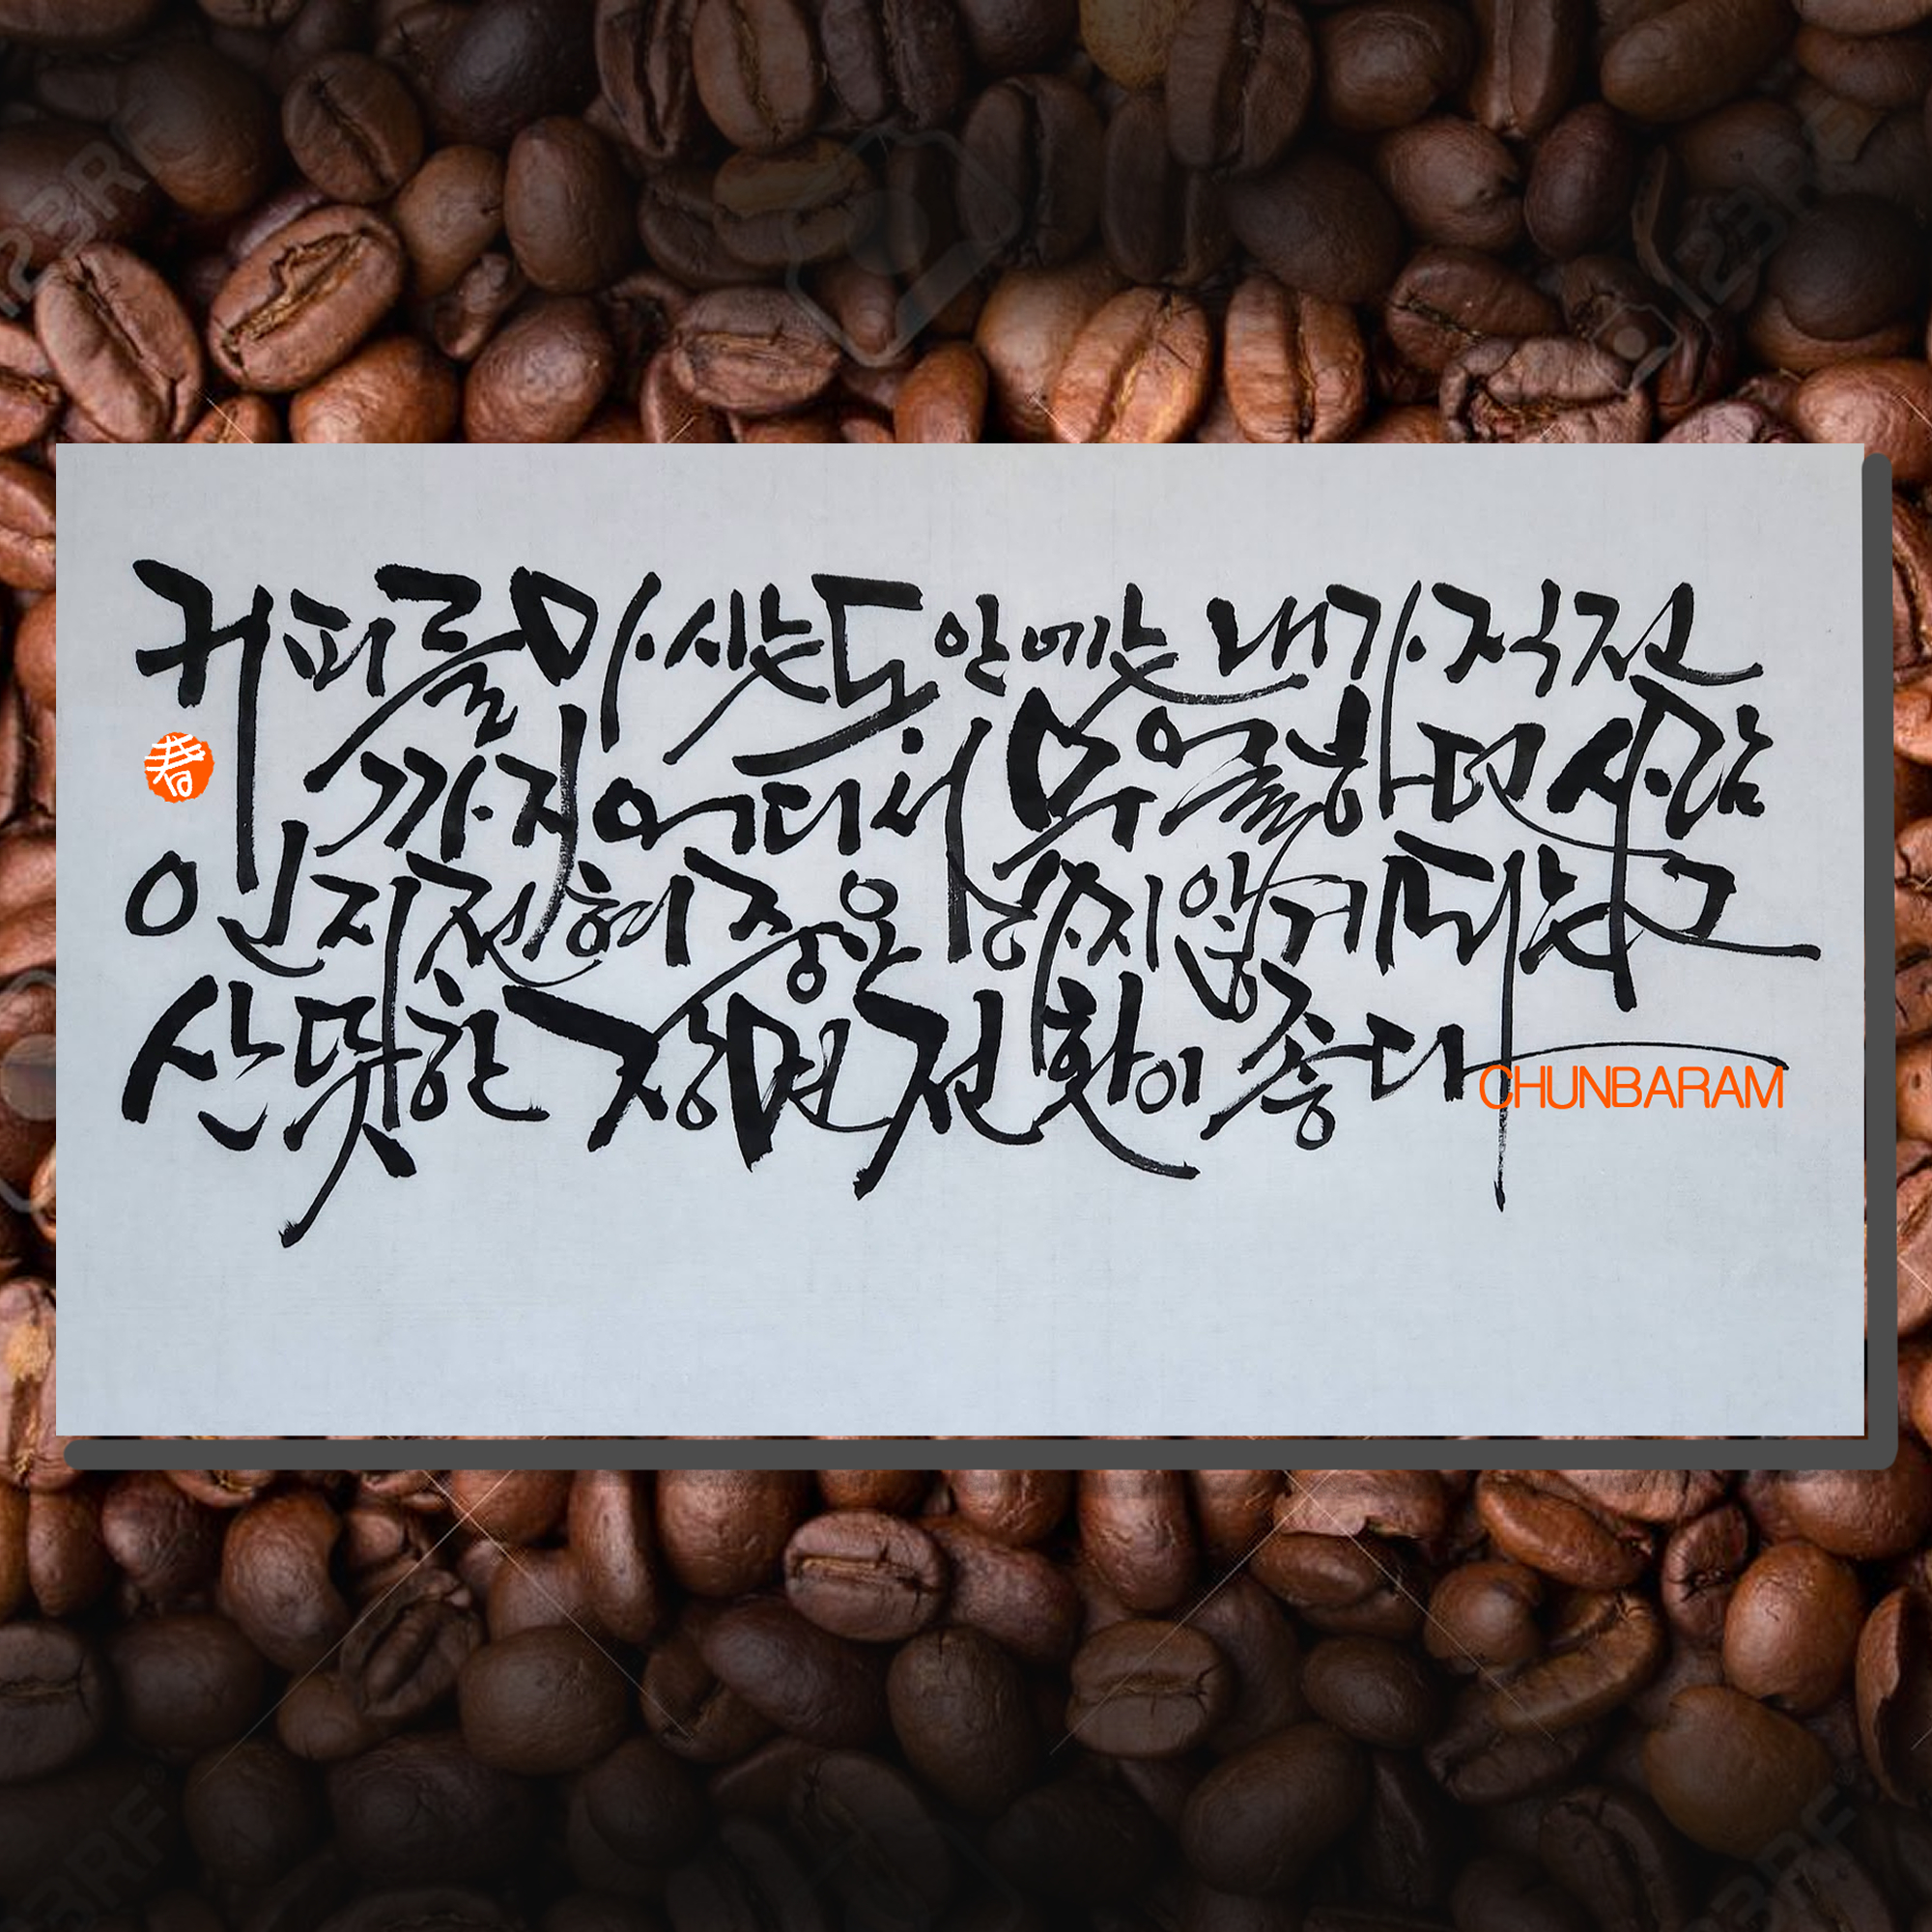 커피를 마시는 동안에는 내가 직전
까지 어디서 무엇을 하던 사람
인지 전혀 중요하지 않게 되는 그
산뜻한 장면전환이 좋다
CHUNBARAM
春
123RF
123RF
123RF
123RF